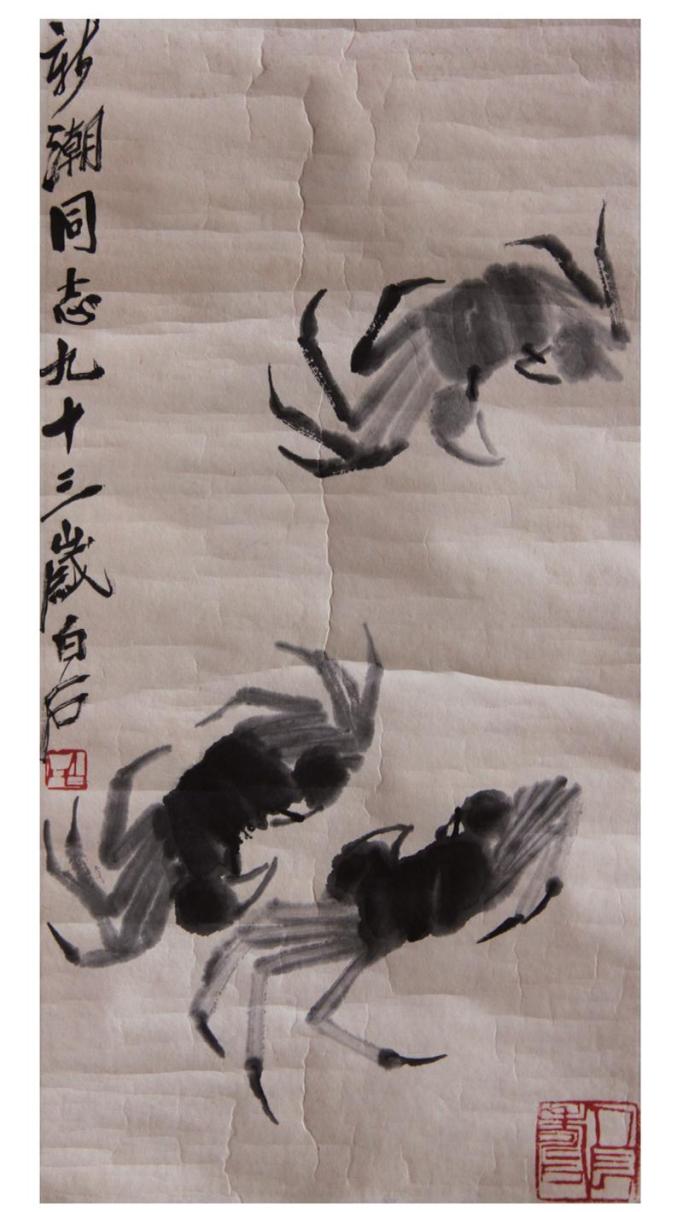 新潮同志九十三歲白石